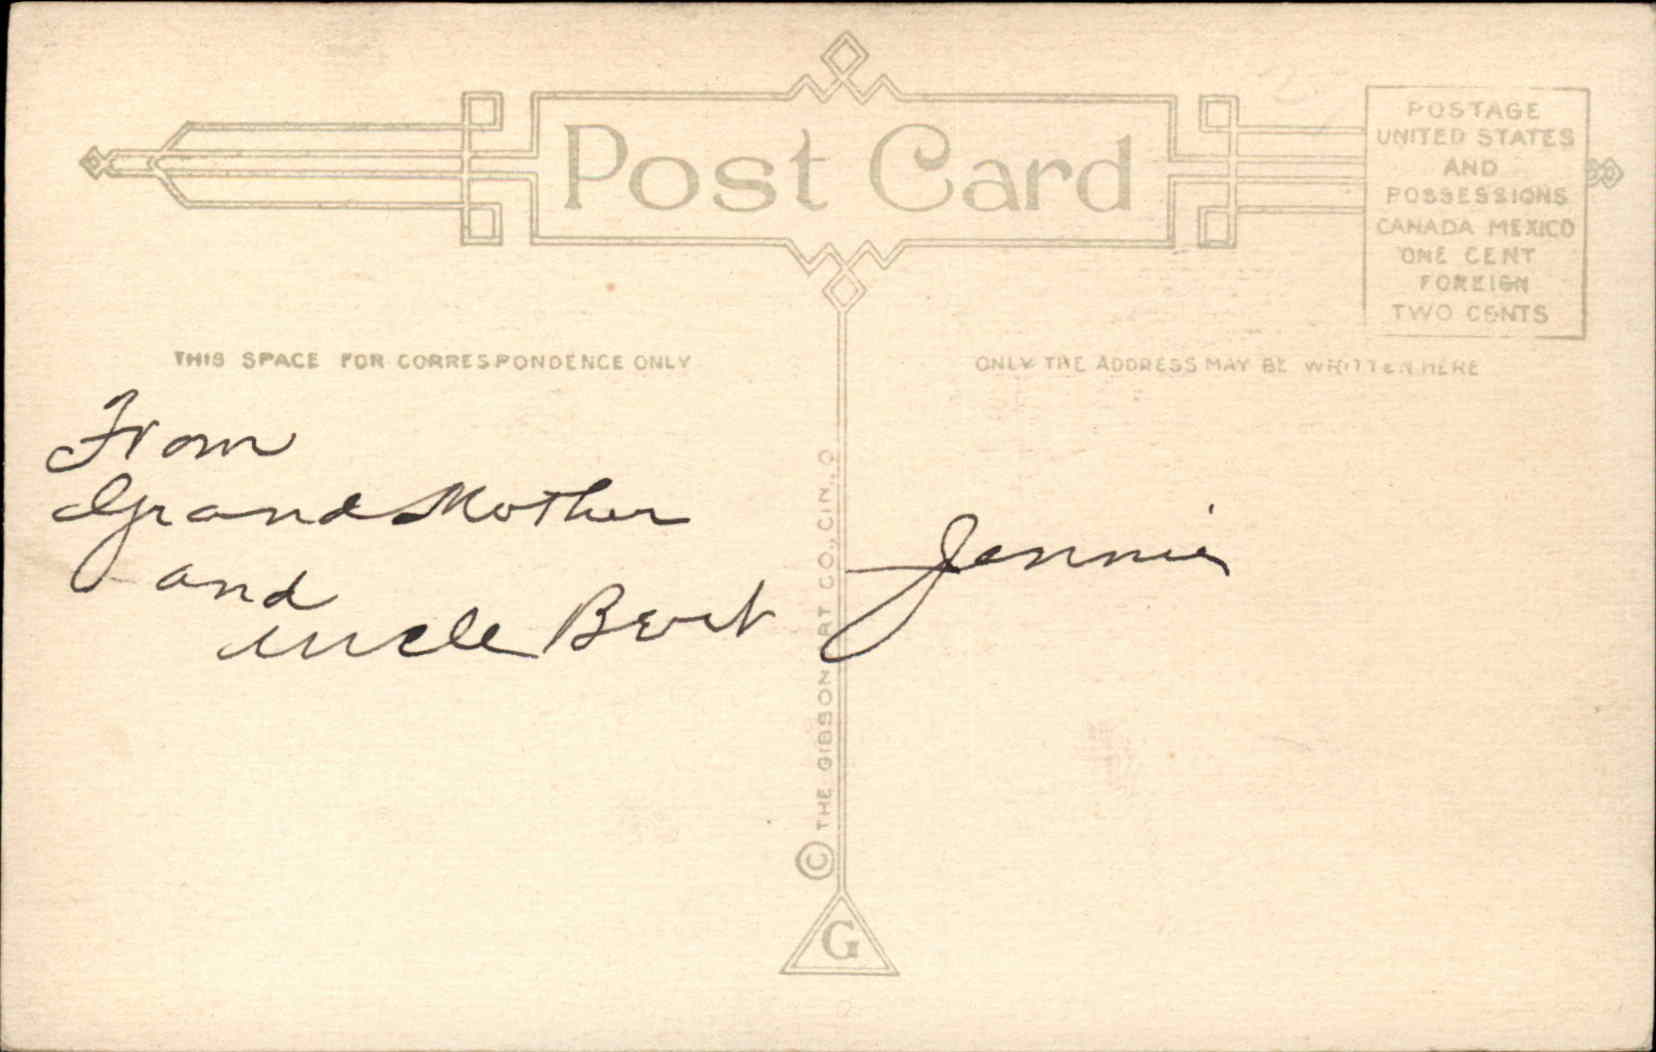 Post Card
POSTAGE
UNITED STATES
AND
POSSESSIONS
CANADA MEXICO
ONE CENT
FOREIGN
TWO CENTS
THIS SPACE FOR CORRESPONDENCE ONLY
ONLY THE ADDRESS MAY BE WRITTEN HERE
From
Grand Mother
and
uncle Bert
Jennie
© THE GIBSON ART CO., CIN., O
G